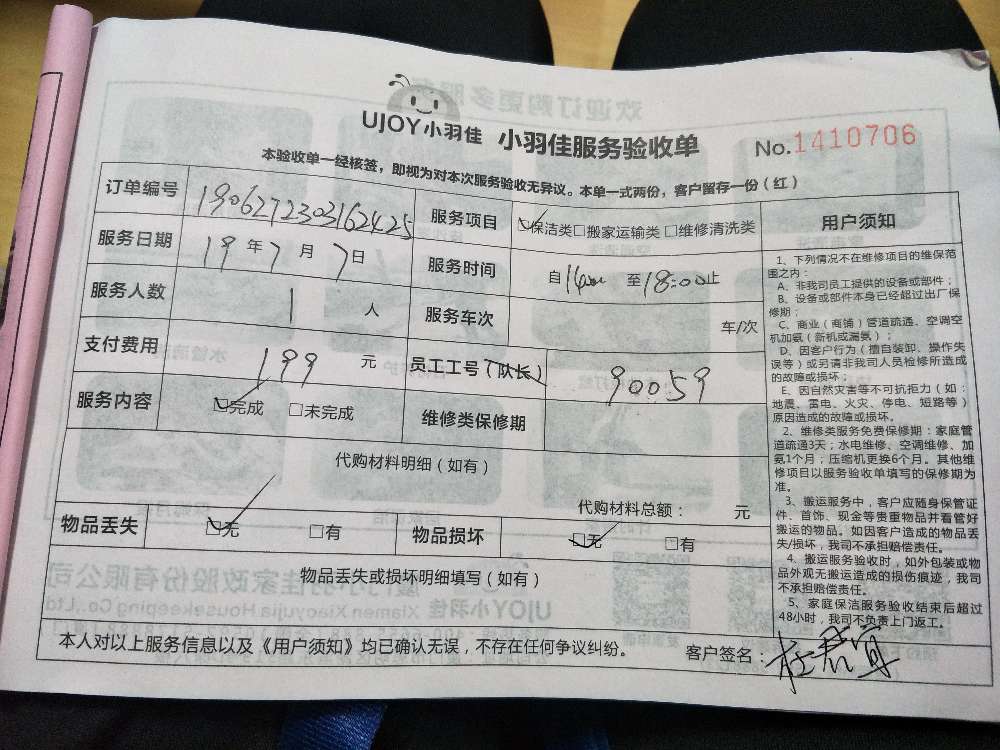 UJOY小羽佳 小羽佳服务验收单 No.1410706
本验收单一经核签，即视为对本次服务验收无异议。本单一式两份，客户留存一份（红）
订单编号 1906272303162425 服务项目 保洁类□搬家运输类□维修清洗类
服务日期 19年7月7日 服务时间 自 至18:00止
服务人数 1人 服务车次 车/次
支付费用 199元 员工工号（队长） 90059
服务内容 完成 □未完成 维修类保修期
代购材料明细（如有）
代购材料总额： 元
物品丢失 无 □有 物品损坏 无 □有
物品丢失或损坏明细填写（如有）
本人对以上服务信息以及《用户须知》均已确认无误，不存在任何争议纠纷。 客户签名：
用户须知
1、下列情况不在维修项目的维保范
围之内：
A、非我司员工提供的设备或部件；
B、设备或部件本身已经超过出厂保
修期；
C、商业（商铺）管道疏通、空调空
机加氨（新机或漏氨）；
D、因客户行为（擅自装卸、操作失
误等）或另请非我司人员检修所造成
的故障或损坏；
E、因自然灾害等不可抗拒力（如：
地震、雷电、火灾、停电、短路等）
原因造成的故障或损坏。
2、维修类服务免费保修期：家庭管
道疏通3天；水电维修、空调维修、加
氨1个月；压缩机更换6个月。其他维
修项目以服务验收单填写的保修期为
准。
3、搬运服务中，客户应随身保管证
件、首饰、现金等贵重物品并看管好
搬运的物品。如因客户造成的物品丢
失/损坏，我司不承担赔偿责任。
4、搬运服务验收时，如外包装或物
品外观无搬运造成的损伤痕迹，我司
不承担赔偿责任。
5、家庭保洁服务验收结束后超过
48小时，我司不负责上门返工。